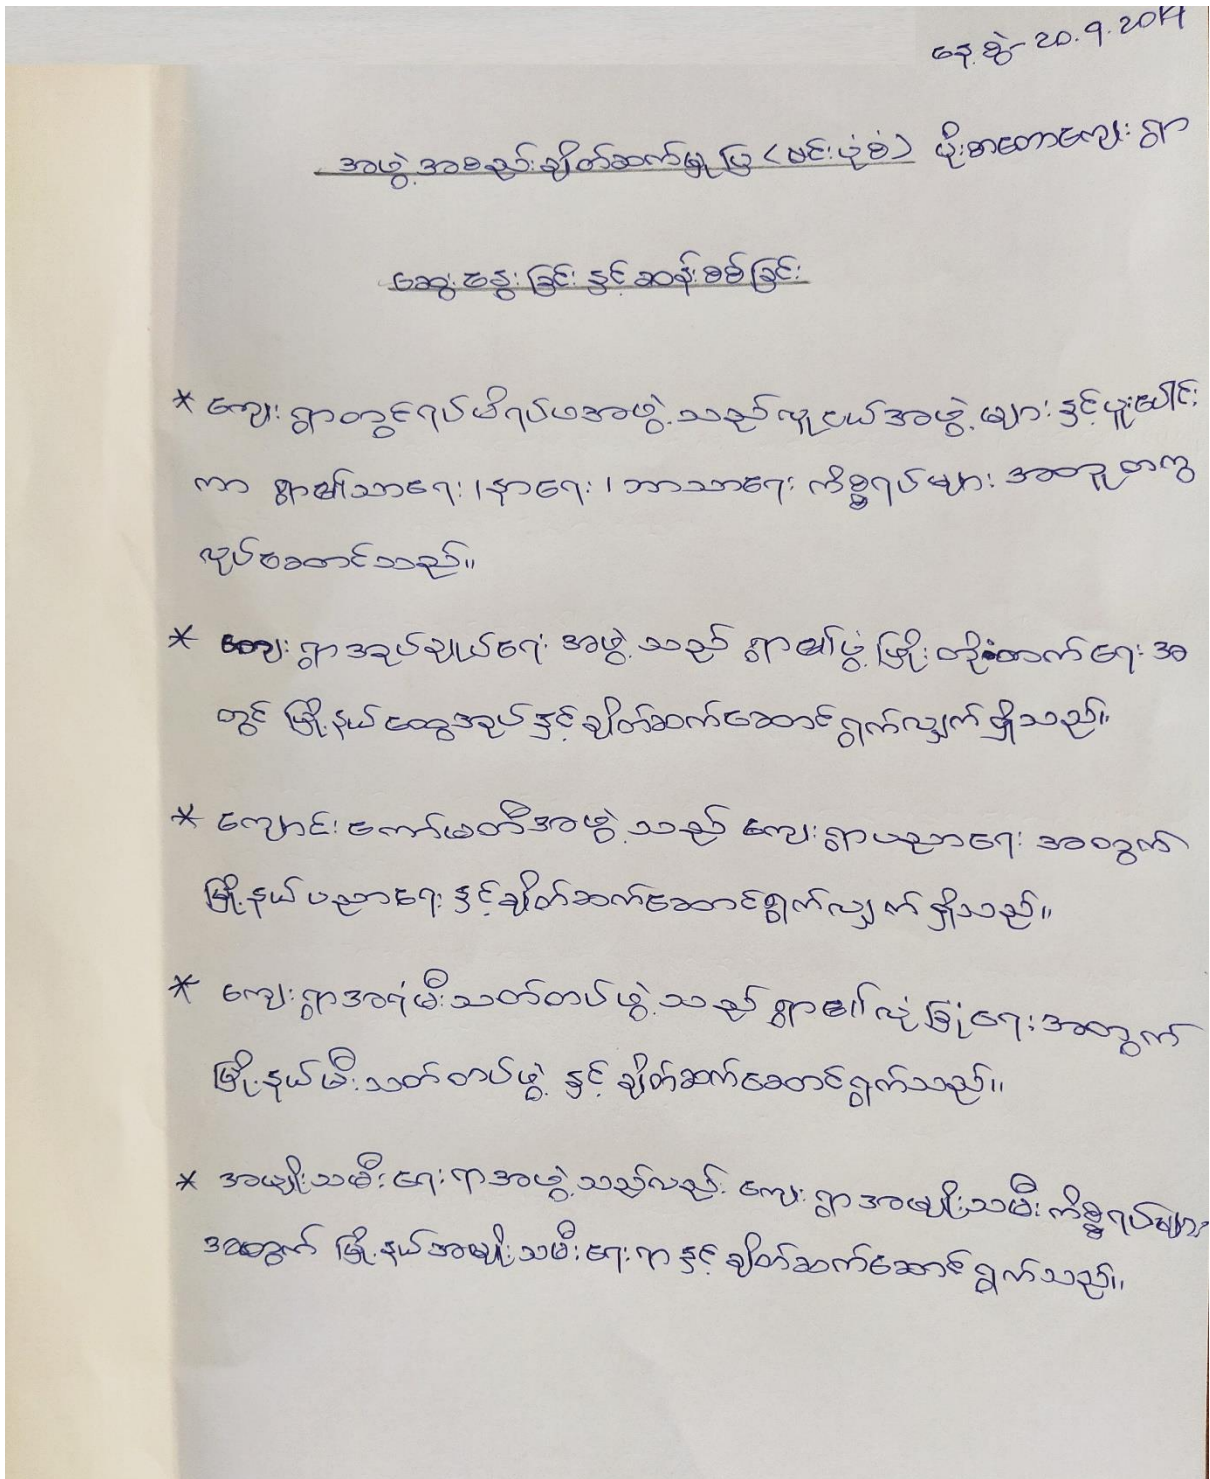 နေ့စွဲ - 20.9.2019
အဖွဲ့အစည်းချိတ်ဆက်မှုပြ (ဗင်းပုံစံ) ပိုးစာတောကျေးရွာ
ဆွေးနွေးခြင်းနှင့်ဆန်းစစ်ခြင်း
* ကျေးရွာတွင်ရပ်မိရပ်ဖအဖွဲ့သည်လူငယ်အဖွဲ့များနှင့်ပူးပေါင်း
ကာ ရွာ၏သာရေး၊နာရေး၊ဘာသာရေး ကိစ္စရပ်များ အတူတကွ
လုပ်ဆောင်သည်။
* ကျေးရွာအုပ်ချုပ်ရေး အဖွဲ့သည် ရွာ၏ဖွံ့ဖြိုးတိုးတက်ရေးအ
တွင် မြို့နယ်ထွေအုပ်နှင့်ချိတ်ဆက်ဆောင်ရွက်လျှက်ရှိသည်။
* ကျောင်းကော်မတီအဖွဲ့သည် ကျေးရွာပညာရေး အတွက်
မြို့နယ်ပညာရေးနှင့်ချိတ်ဆက်ဆောင်ရွက်လျှက်ရှိသည်။
* ကျေးရွာအရံမီးသတ်တပ်ဖွဲ့သည် ရွာ၏လုံခြုံရေးအတွက်
မြို့နယ်မီးသတ်တပ်ဖွဲ့ နှင့် ချိတ်ဆက်ဆောင်ရွက်သည်။
* အမျိုးသမီးရေးရာအဖွဲ့သည်လည်း ကျေးရွာအမျိုးသမီးကိစ္စရပ်များ
အတွက် မြို့နယ်အမျိုးသမီးရေးရာနှင့် ချိတ်ဆက်ဆောင်ရွက်သည်။